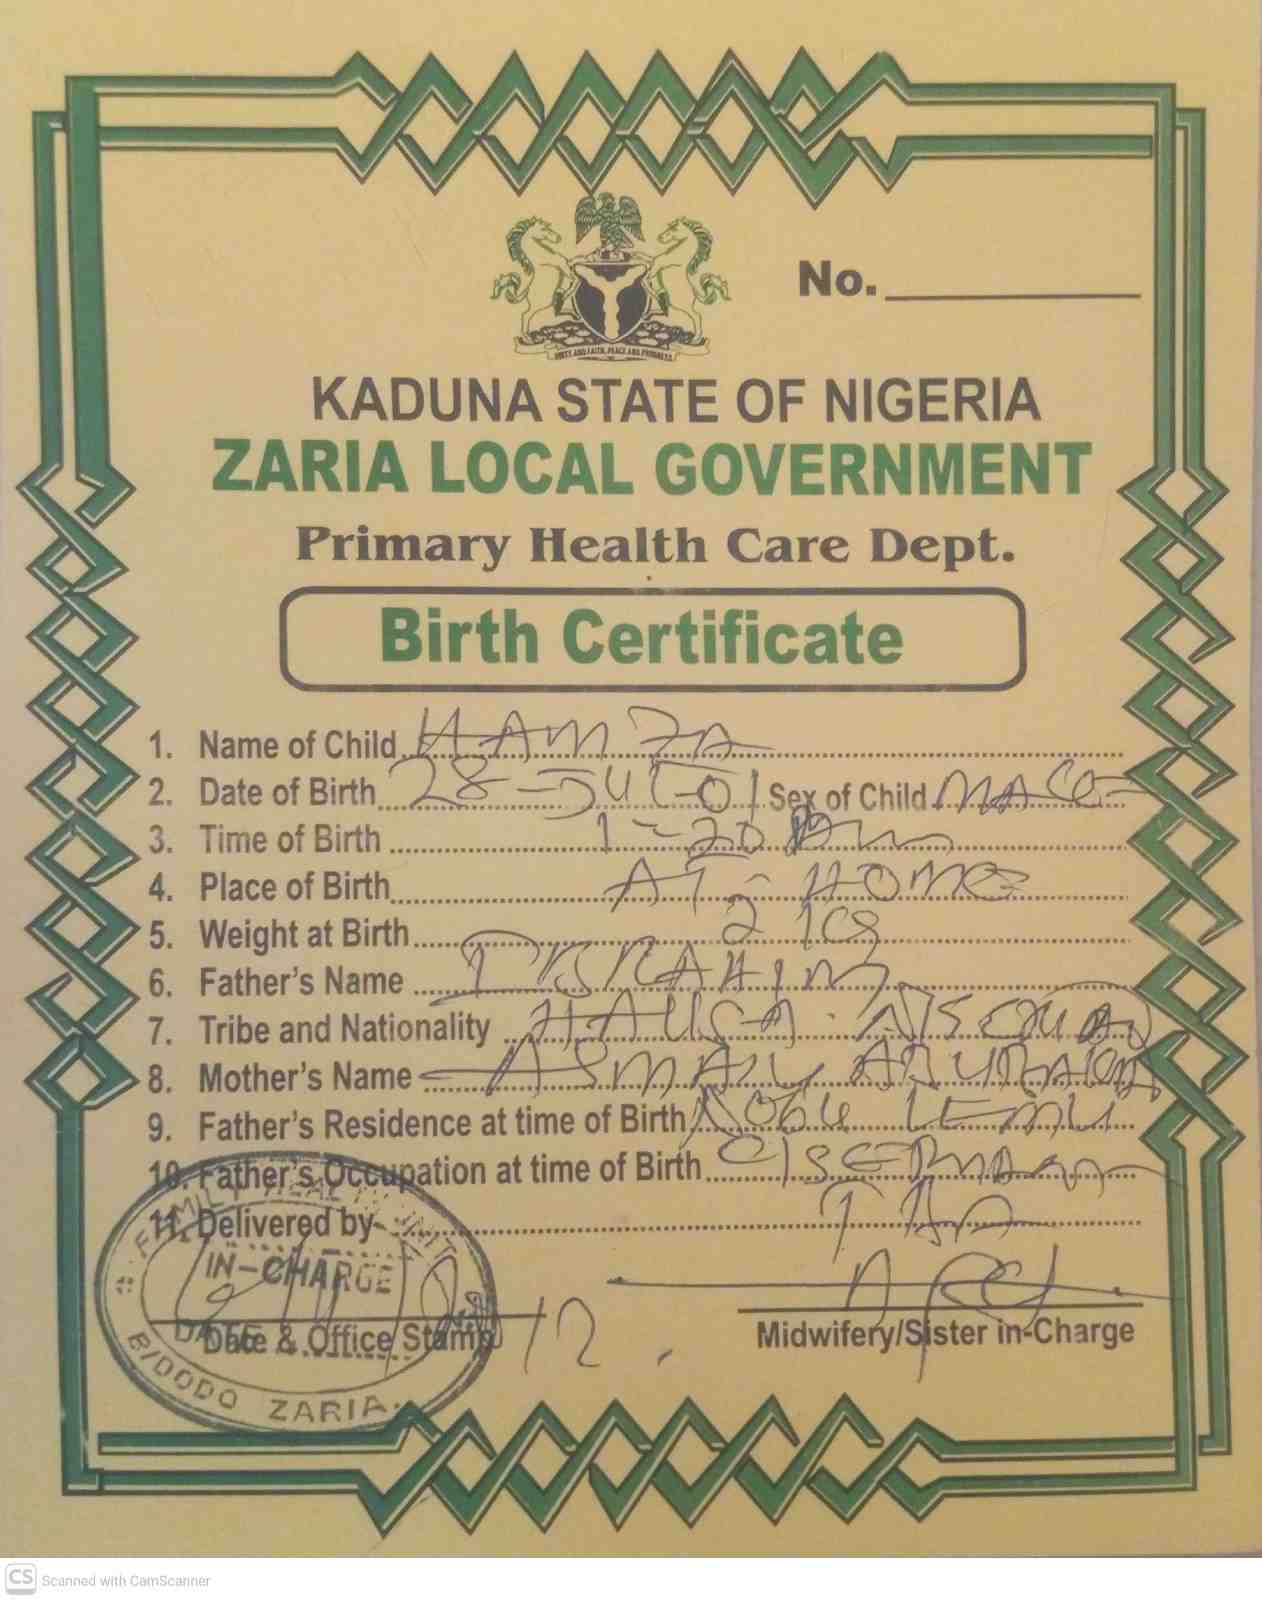 UNITY AND FAITH, PEACE AND PROGRESS
No.
KADUNA STATE OF NIGERIA
ZARIA LOCAL GOVERNMENT
Primary Health Care Dept.
Birth Certificate
1. Name of Child HAMZA
2. Date of Birth 28-JUL-01 Sex of Child MALE
3. Time of Birth 1-20
4. Place of Birth AT-HOME
5. Weight at Birth 2 kg
6. Father's Name IBRAHIM
7. Tribe and Nationality HAUSA.
8. Mother's Name
9. Father's Residence at time of Birth LEMU
10. Father's Occupation at time of Birth
11. Delivered by TBA
FAMILY HEALTH UNIT
IN-CHARGE
DATE
B/DODO ZARIA.
Date & Office Stamp
Midwifery/Sister in-Charge
CS Scanned with CamScanner